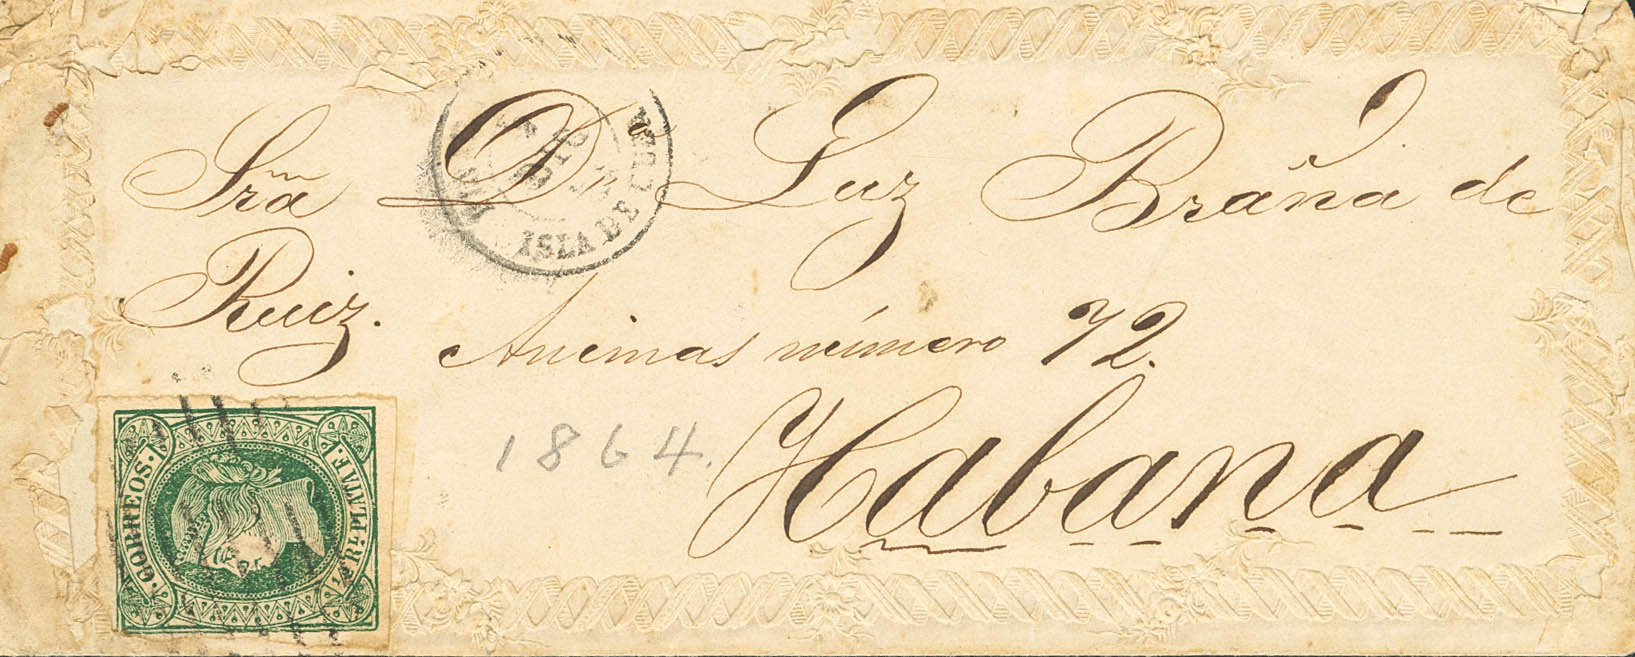 Sra Dª Luz Braña de
Ruiz.
Animas número 72.
Habana
1864.
ISLA DE CUBA
CORREOS.
Rl PLATA F.